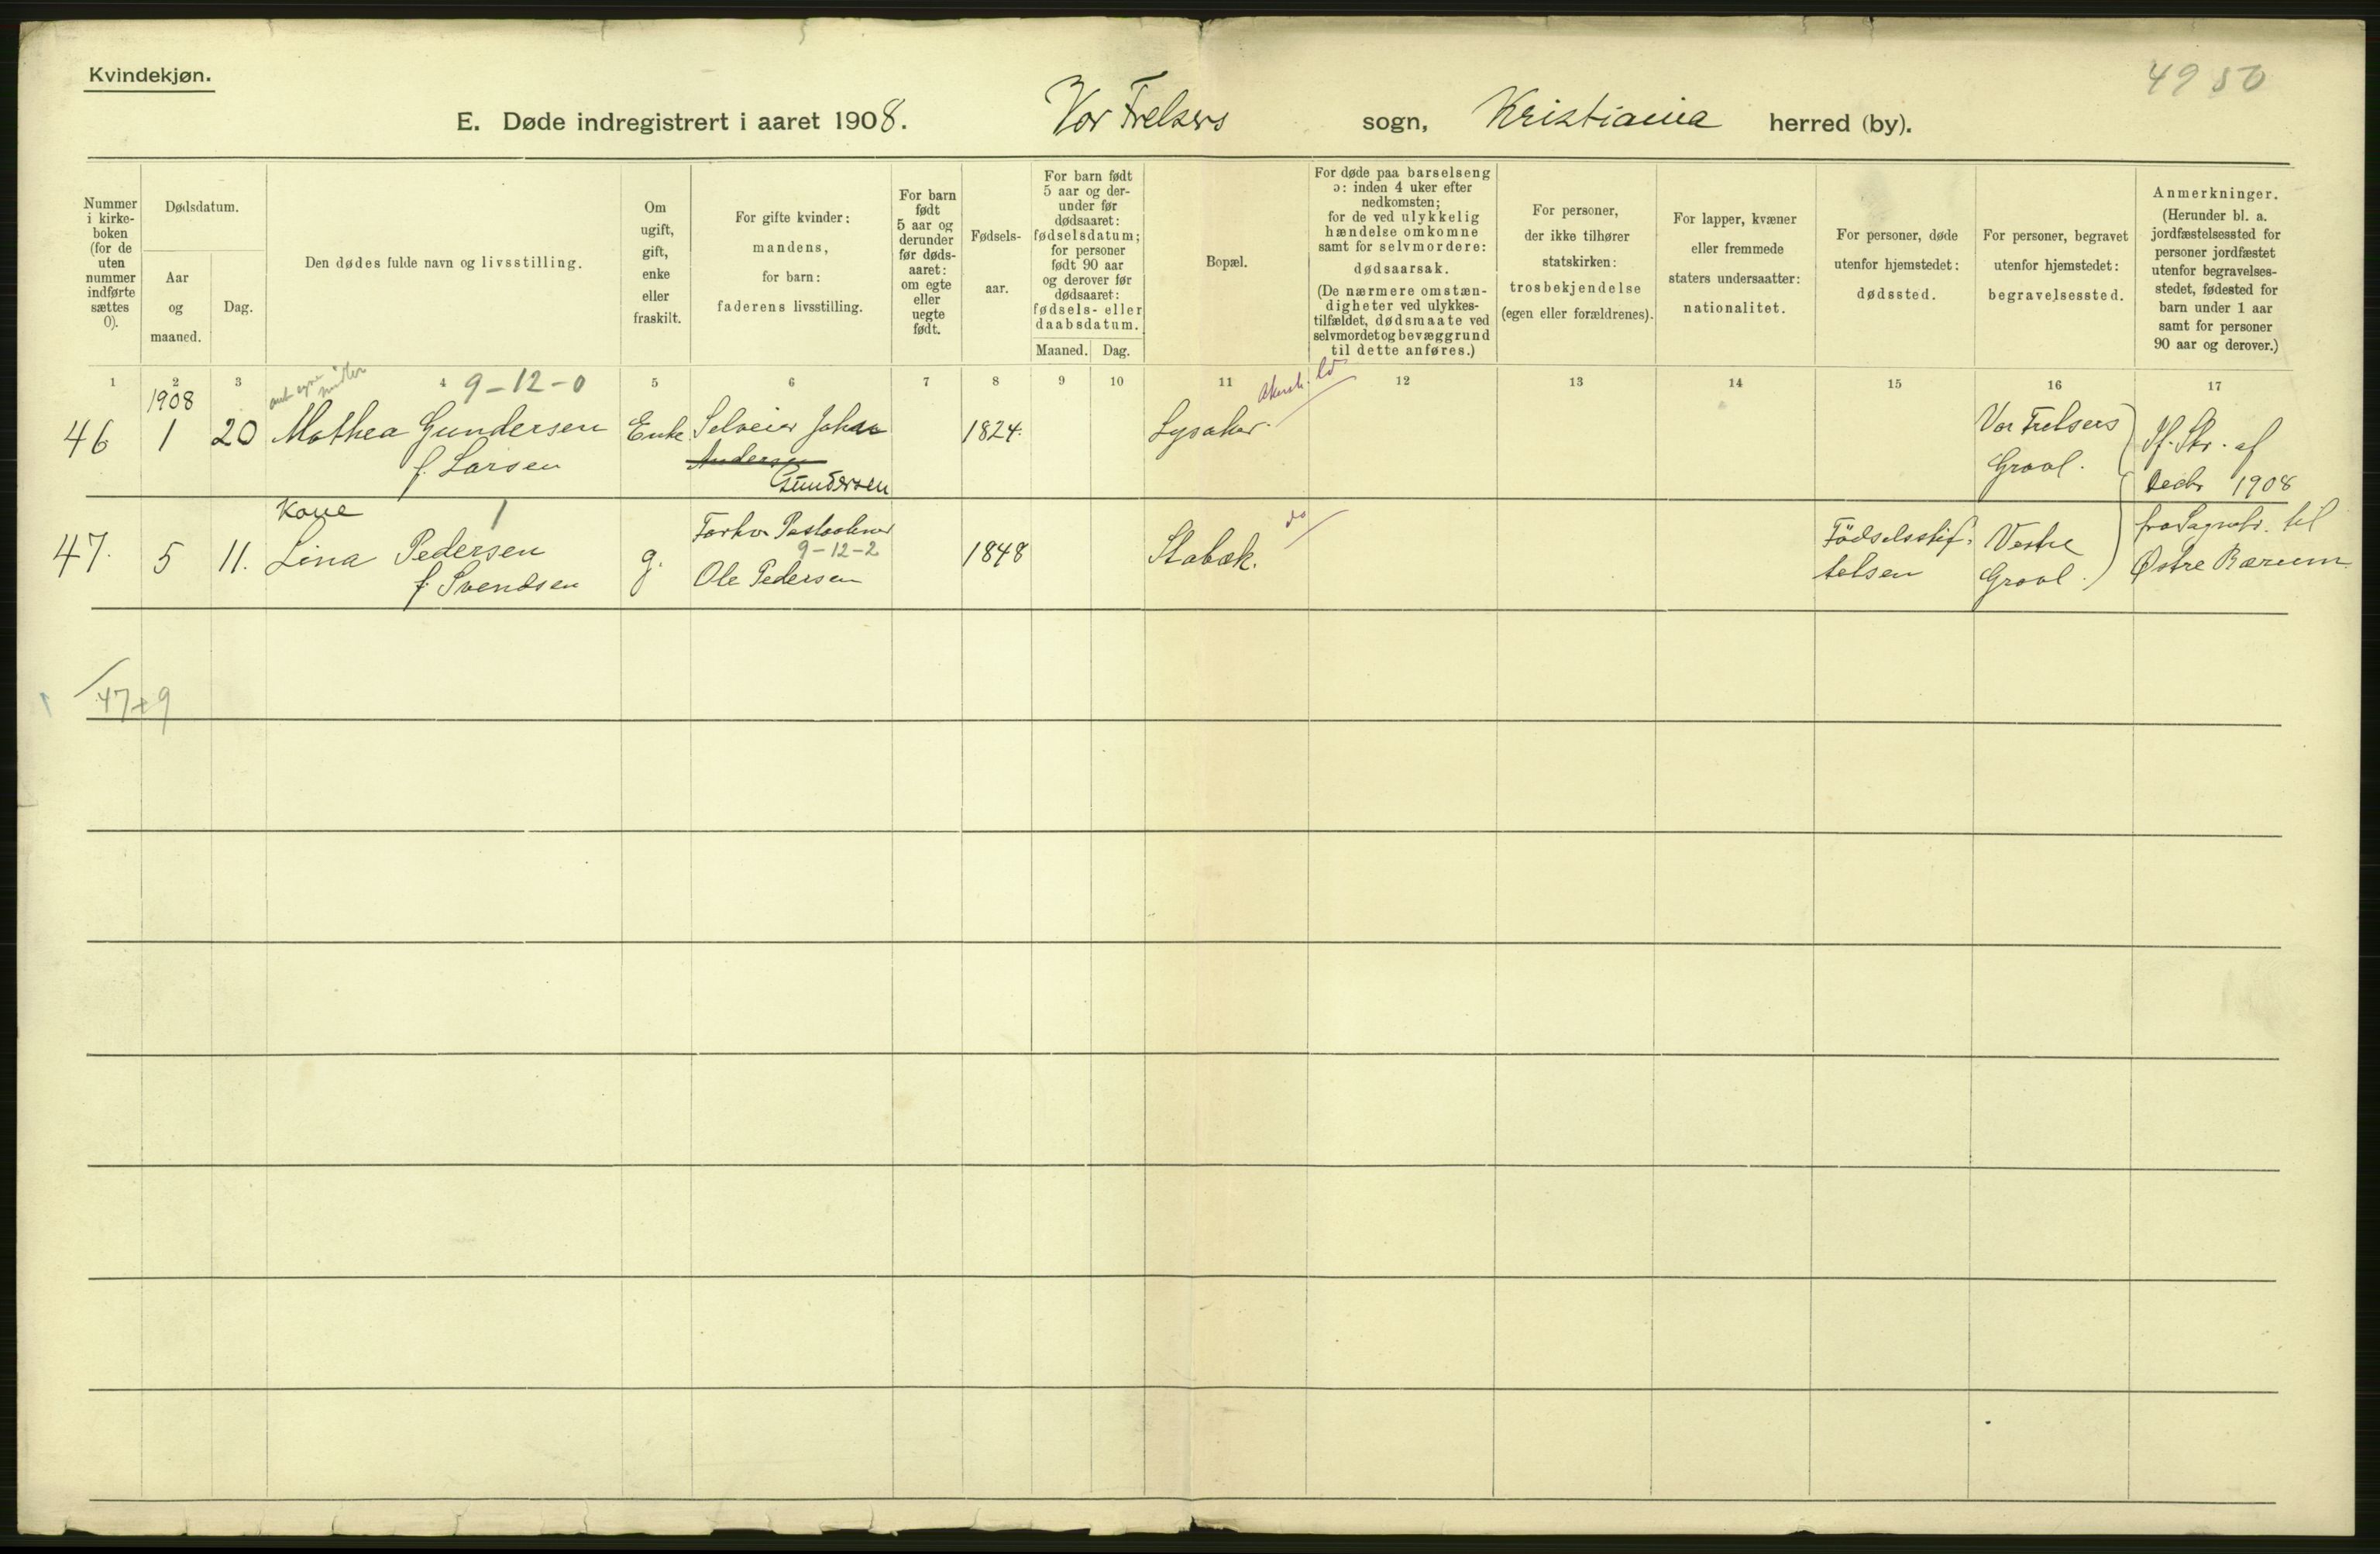 Kvindekjøn.
4950
E. Døde indregistrert i aaret 1908. Vor Frelsers sogn, Kristiania herred (by).
Nummer i kirke-boken (for de uten nummer indførte sættes 0).
Dødsdatum.
Aar og maaned.
Dag.
Den dødes fulde navn og livsstilling.
Om ugift, gift, enke eller fraskilt.
For gifte kvinder: mandens, for barn: faderens livsstilling.
For barn født 5 aar og derunder før døds-aaret: om egte eller uegte født.
Fødsels-aar.
For barn født 5 aar og der-under før dødsaaret: fødselsdatum; for personer født 90 aar og derover før dødsaaret: fødsels- eller daabsdatum.
Maaned. Dag.
Bopæl.
For døde paa barselseng ɔ: inden 4 uker efter nedkomsten; for de ved ulykkelig hændelse omkomne samt for selvmordere: dødsaarsak. (De nærmere omstæn-digheter ved ulykkes-tilfældet, dødsmaate ved selvmordet og bevæggrund til dette anføres.)
For personer, der ikke tilhører statskirken: trosbekjendelse (egen eller forældrenes).
For lapper, kvæner eller fremmede staters undersaatter: nationalitet.
For personer, døde utenfor hjemstedet: dødssted.
For personer, begravet utenfor hjemstedet: begravelsessted.
Anmerkninger. (Herunder bl. a. jordfæstelsessted for personer jordfæstet utenfor begravelses-stedet, fødested for barn under 1 aar samt for personer 90 aar og derover.)
1 2 3 4 5 6 7 8 9 10 11 12 13 14 15 16 17
1908
9-12-0
46 1 20 Mathea Gundersen Enke Selveier Johan 1824. Lysaker. Vor Frelsers
f. Larsen Andersen Gravl.
Gundersen
af
Decbr 1908
Kone 1
47. 5 11. Lina Pedersen g. 1848 Stabæk. do Födselsstif- Vestre
f. Svendsen 9-12-2 telsen Gravl.
Ole Pedersen
til
Østre Bærum
47+9